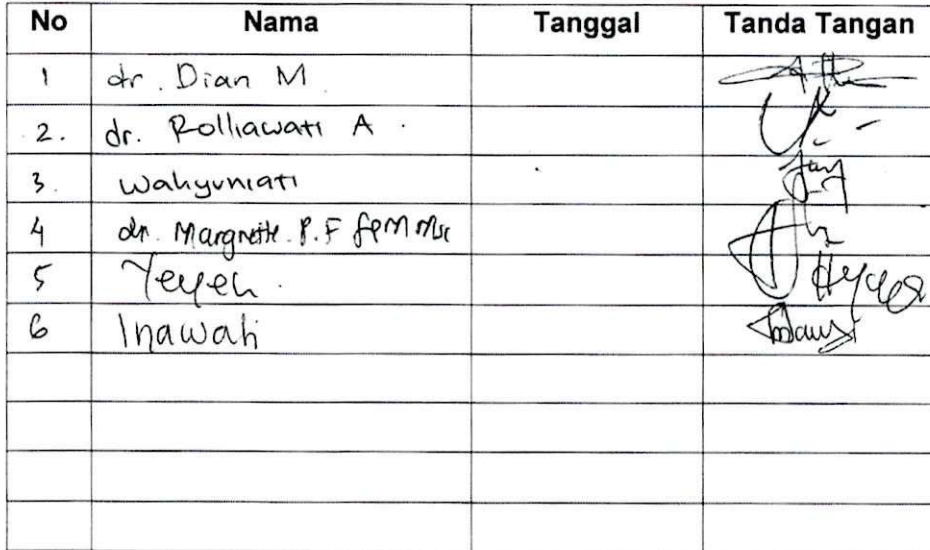 No Nama Tanggal Tanda Tangan
1 dr. Dian M
2. dr. Rolliawati A.
3. Wahyuniati
4 dr. Margrette P.F SpM Msc
5 Yeyeh.
6 Inawati